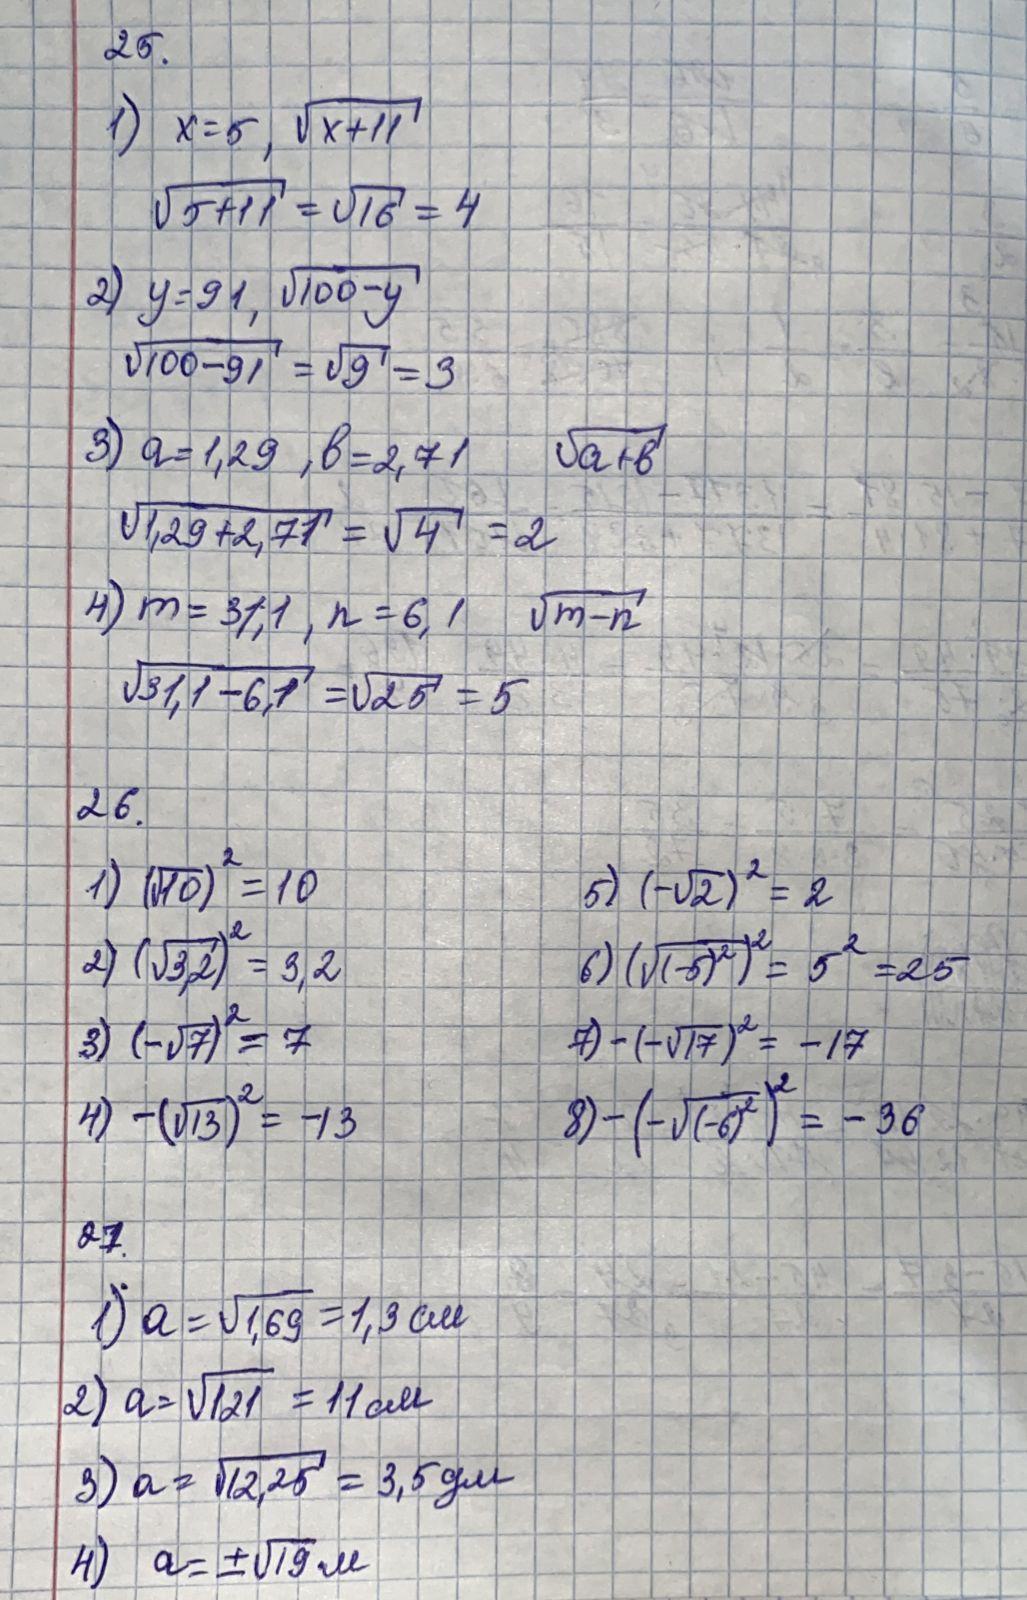 25.
1) x=5, √(x+11)
√(5+11) = √16 = 4
2) y=91, √(100-y)
√(100-91) = √9 = 3
3) a=1,29 , b=2,71 √(a+b)
√(1,29+2,71) = √4 = 2
4) m=31,1 , n=6,1 √(m-n)
√(31,1-6,1) = √25 = 5
26.
1) (√10)² = 10
2) (√3,2)² = 3,2
3) (-√7)² = 7
4) -(√13)² = -13
5) (-√2)² = 2
6) (√(-5)²)² = 5² = 25
7) -(-√17)² = -17
8) -(-√(-6)²)² = -36
27.
1) a = √1,69 = 1,3 см
2) a = √121 = 11 см
3) a = √12,25 = 3,5 дм
4) a = ±√19 м